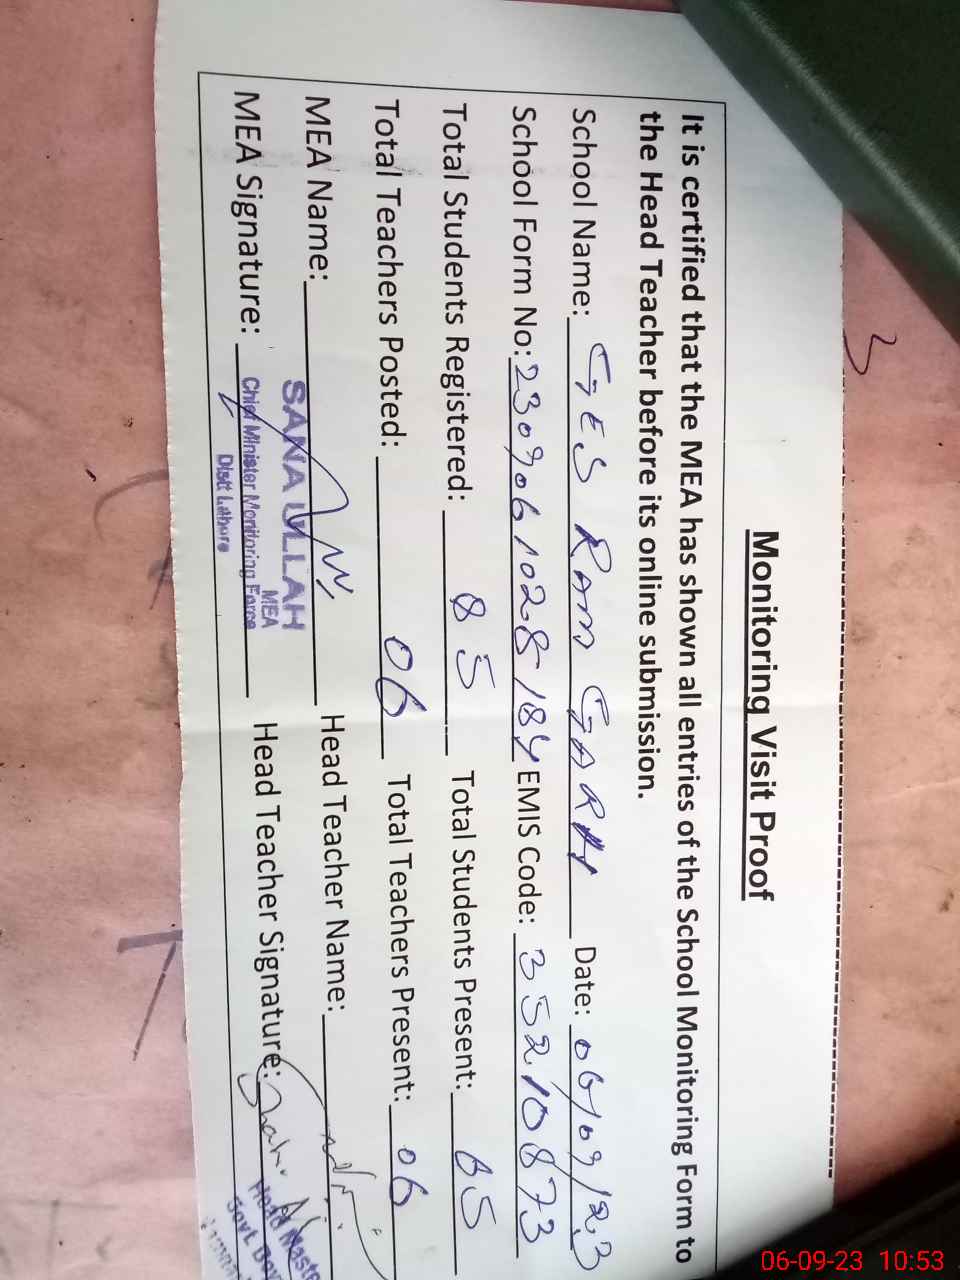 Monitoring Visit Proof
It is certified that the MEA has shown all entries of the School Monitoring Form to
the Head Teacher before its online submission.
School Name: GES RAM GARH Date: 06/09/23
School Form No: 2309061028184 EMIS Code: 35210873
Total Students Registered: 85 Total Students Present: 65
Total Teachers Posted: 06 Total Teachers Present: 06
MEA Name: Head Teacher Name:
SANA ULLAH
MEA
MEA Signature: Head Teacher Signature:
Chief Minister Monitoring Force
Distt Lahore
Head Maste
Govt. Boy
06-09-23 10:53